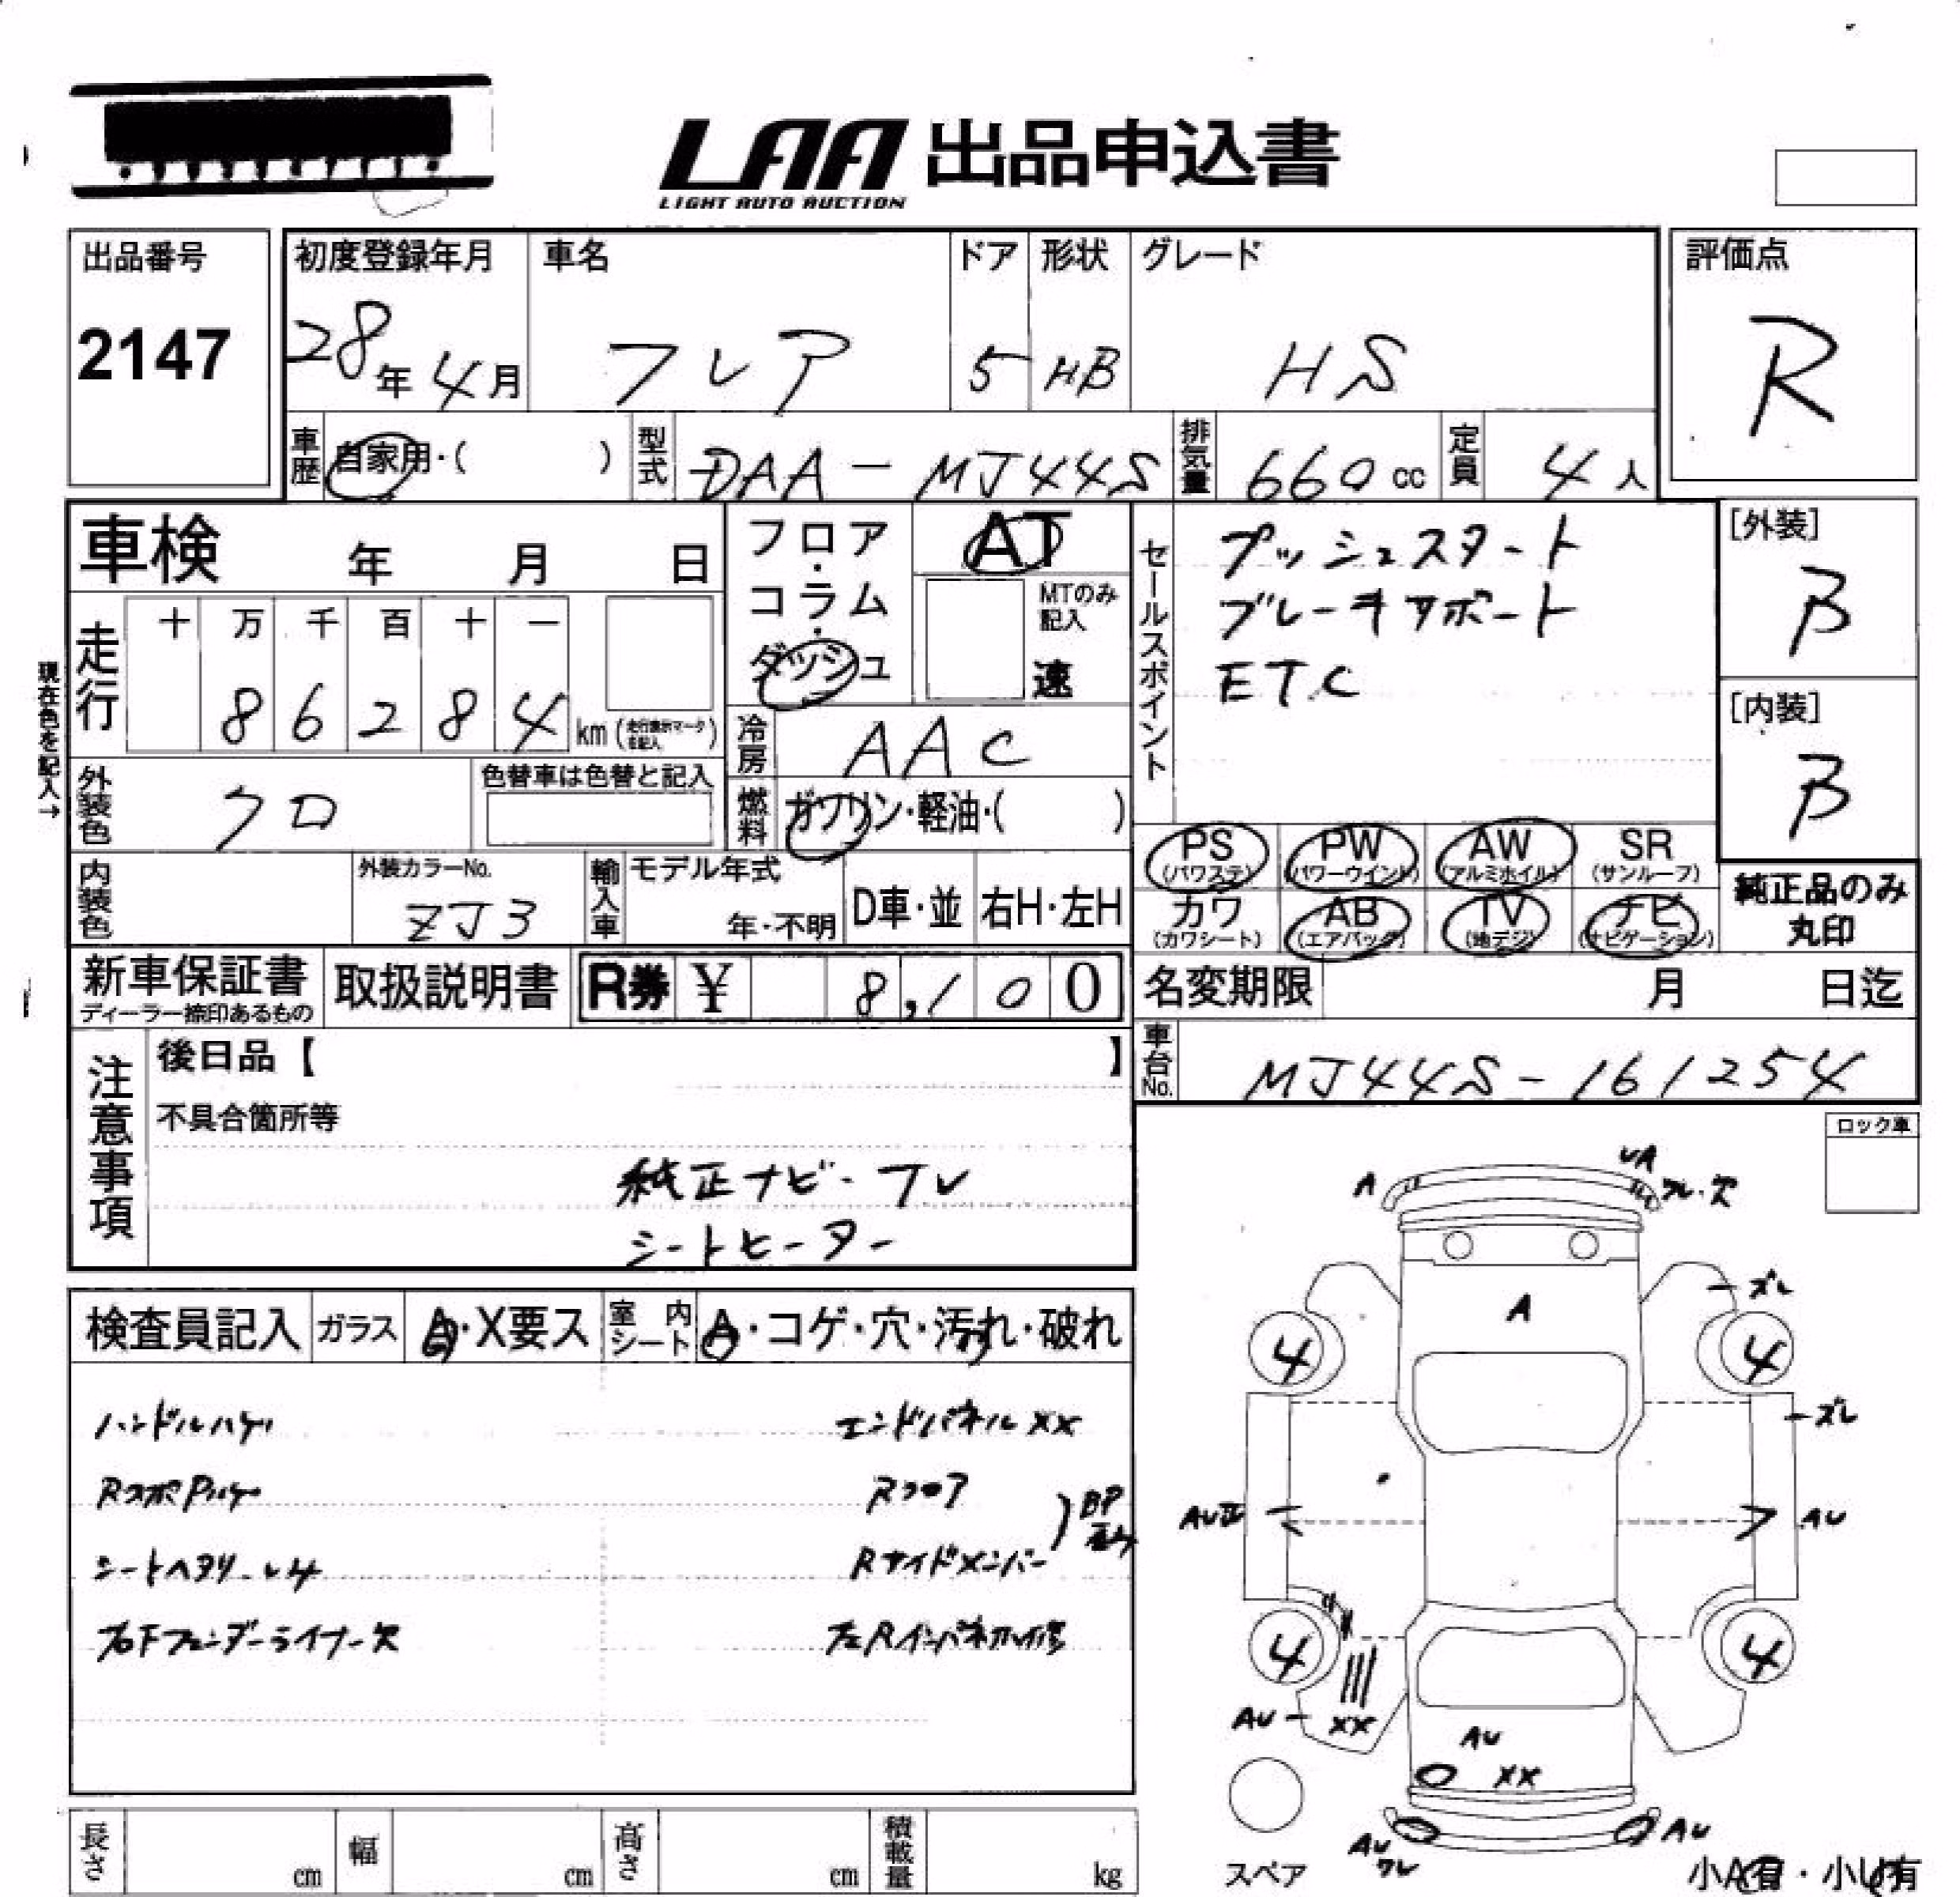 LAA 出品申込書
LIGHT AUTO AUCTION
出品番号
2147
初度登録年月
28年 4月
車名
フレア
ドア
5
形状
HB
グレード
HS
評価点
R
車歴 自家用・( )
型式 DAA-MJ44S
排気量 660 cc
定員 4人
車検 年 月 日
フロア・コラム・ダッシュ
AT
MTのみ記入
速
セールスポイント
プッシュスタート
ブレーキサポート
ETC
[外装]
B
[内装]
B
現在色を記入→
走行 十 万 千 百 十 一
8 6 2 8 4 km (走行表示マークを記入)
冷房 AAC
外装色 クロ
色替車は色替と記入
燃料 ガソリン・軽油・( )
PS (パワステ)
PW (パワーウインド)
AW (アルミホイル)
SR (サンルーフ)
カワ (カワシート)
AB (エアバッグ)
TV (地デジ)
ナビ (ナビゲーション)
純正品のみ丸印
内装色
外装カラーNo.
ZJ3
輸入車
モデル年式
年・不明
D車・並
右H・左H
新車保証書
ディーラー捺印あるもの
取扱説明書
R券 ¥ 8,100
名変期限 月 日迄
車台No. MJ44S-161254
注意事項
後日品【 】
不具合箇所等
純正ナビ・TV
シートヒーター
ロック車
検査員記入
ガラス A・X要ス
室内シート A・コゲ・穴・汚れ・破れ
ハンドルハゲ
エンドパネルXX
Rフロア
シートヘタリ・シミ
Rサイドメンバー
BP
右Fフェンダーライナー欠
左Rインパネ
A
UA
ワレ・穴
ズレ
A
4
4
ズレ
AU
AU
4
4
AU
XX
AU
XX
AU
ワレ
AU
スペア
小A有・小U有
長さ cm
幅 cm
高さ cm
積載量 kg